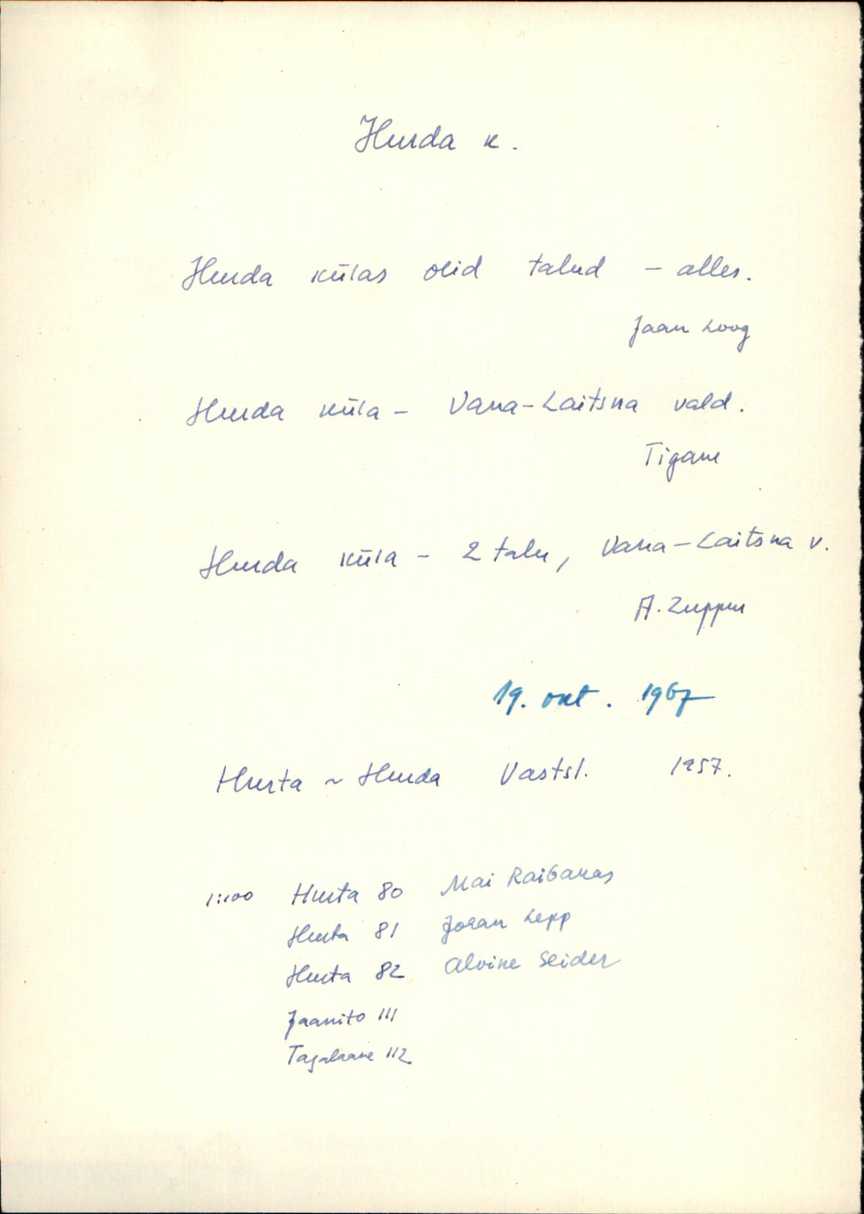 Hurda k.
Hurda külas olid talud - alles.
Jaan Loog
Hurda küla - Vana-Laitsna vald.
Tigane
Hurda küla - 2 talu, Vana-Laitsna v.
A. Zuppur
19. okt. 1967
Hurta ~ Hurda Vastsl. 1957.
1:100 Hurta 80 Mai Raibakas
Hurta 81 Johan Lepp
Hurta 82 Alvine Seider
Jaanito 111
Tagalaane 112